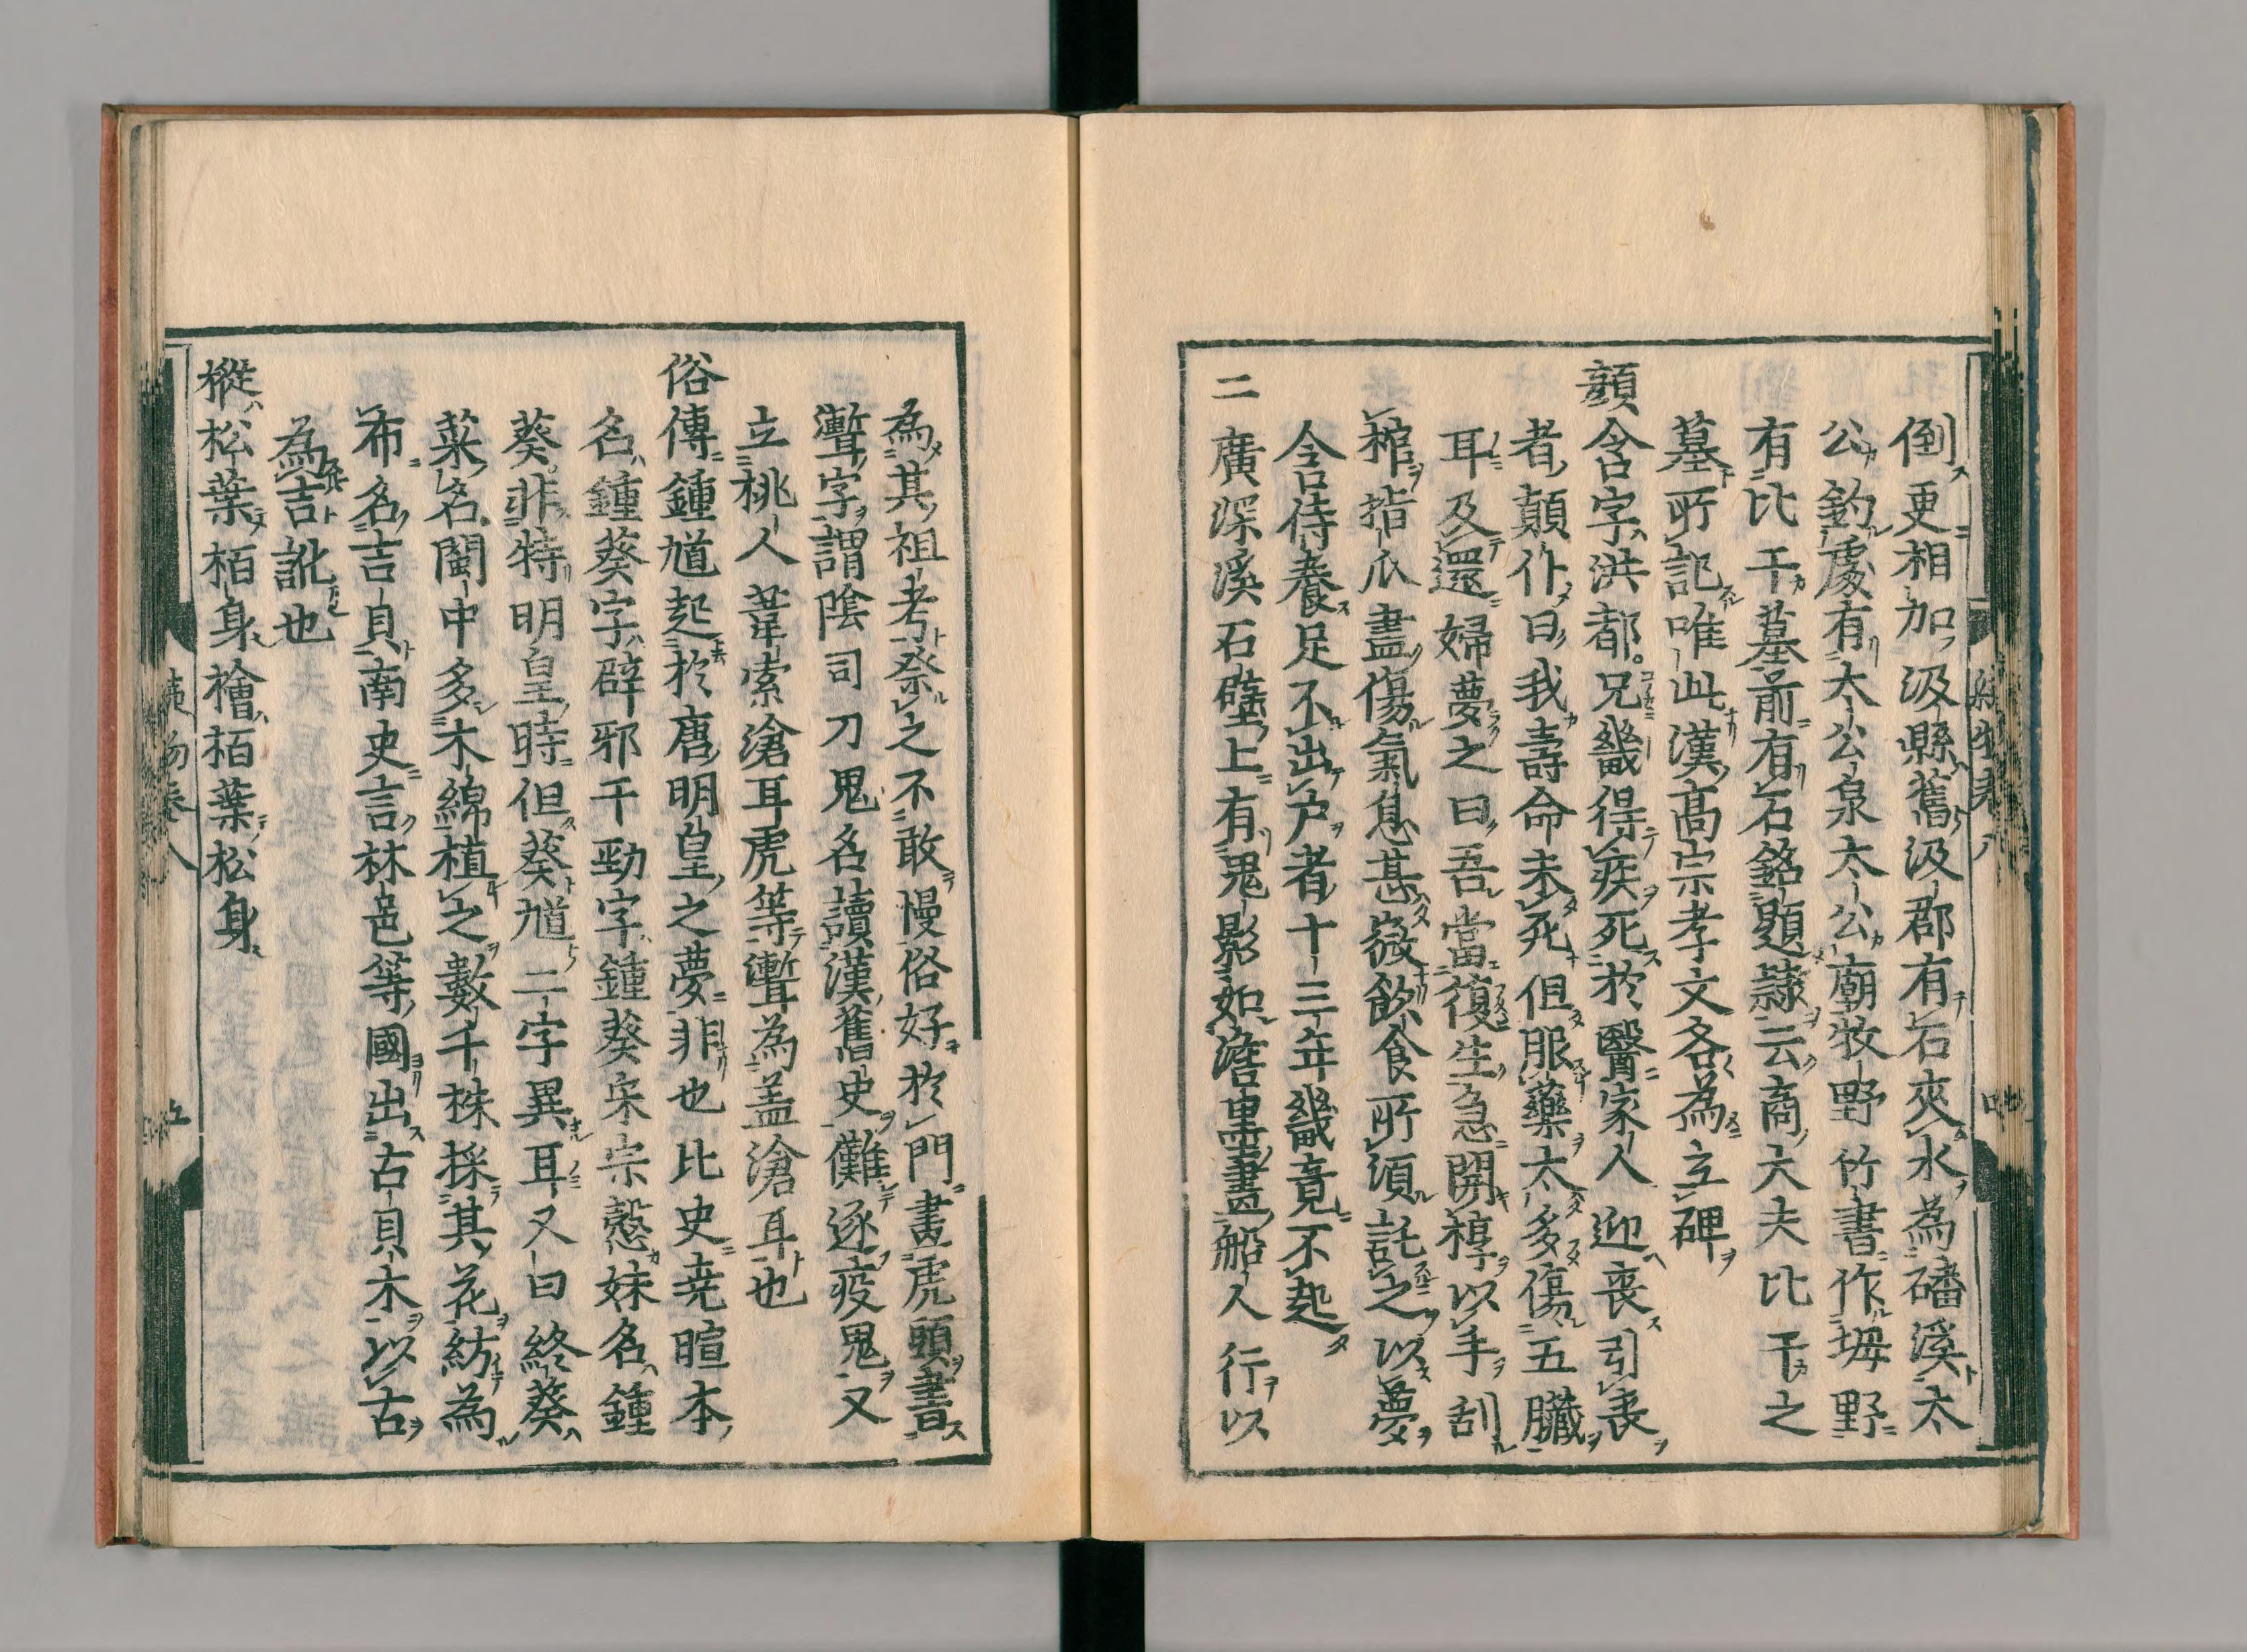 倒更相加汲縣舊汲郡有石夾水為磻溪太
公釣處有太公泉太公廟牧野竹書作坶野
有比干墓前有石銘題隸云商大夫比干之
墓所記唯此漢高宗孝文各為立碑
顔含字洪都兄畿得疾死於醫家人迎喪引喪
者顛仆曰我壽命未死但服藥太多傷五臟
耳及還婦夢之曰吾當復生急開棺以手刮
棺指爪盡傷氣息甚微飲食所須託之以夢
含侍養足不出户者十三年畿竟不起
二廣深溪石壁上有鬼影如澹墨畫船人行以
為其祖考祭之不敢慢俗好於門畫虎頭書
聻字謂陰司刀鬼名讀漢舊史儺逐疫鬼又
立桃人葦索滄耳虎等聻為盖滄耳也
俗傳鍾馗起於唐明皇之夢非也比史尭暄本
名鍾葵字辟邪干勁字鍾葵宋宗慤妹名鍾
葵非特明皇時但葵馗二字異耳又曰終葵
菜名閩中多木綿植之數千株採其花紡為
布名吉貝南史言林邑等國出古貝木以古
為吉訛也
樅松葉栢身檜栢葉松身